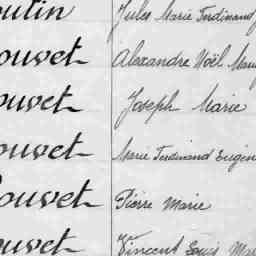 outin Jules Marie Ferdinand
ouvet Alexandre Noël Mary
ouvet Joseph Marie
ouvet Marie Ferdinand Eugène
ouvet Pierre Marie
ouvet Vincent Louis Ma